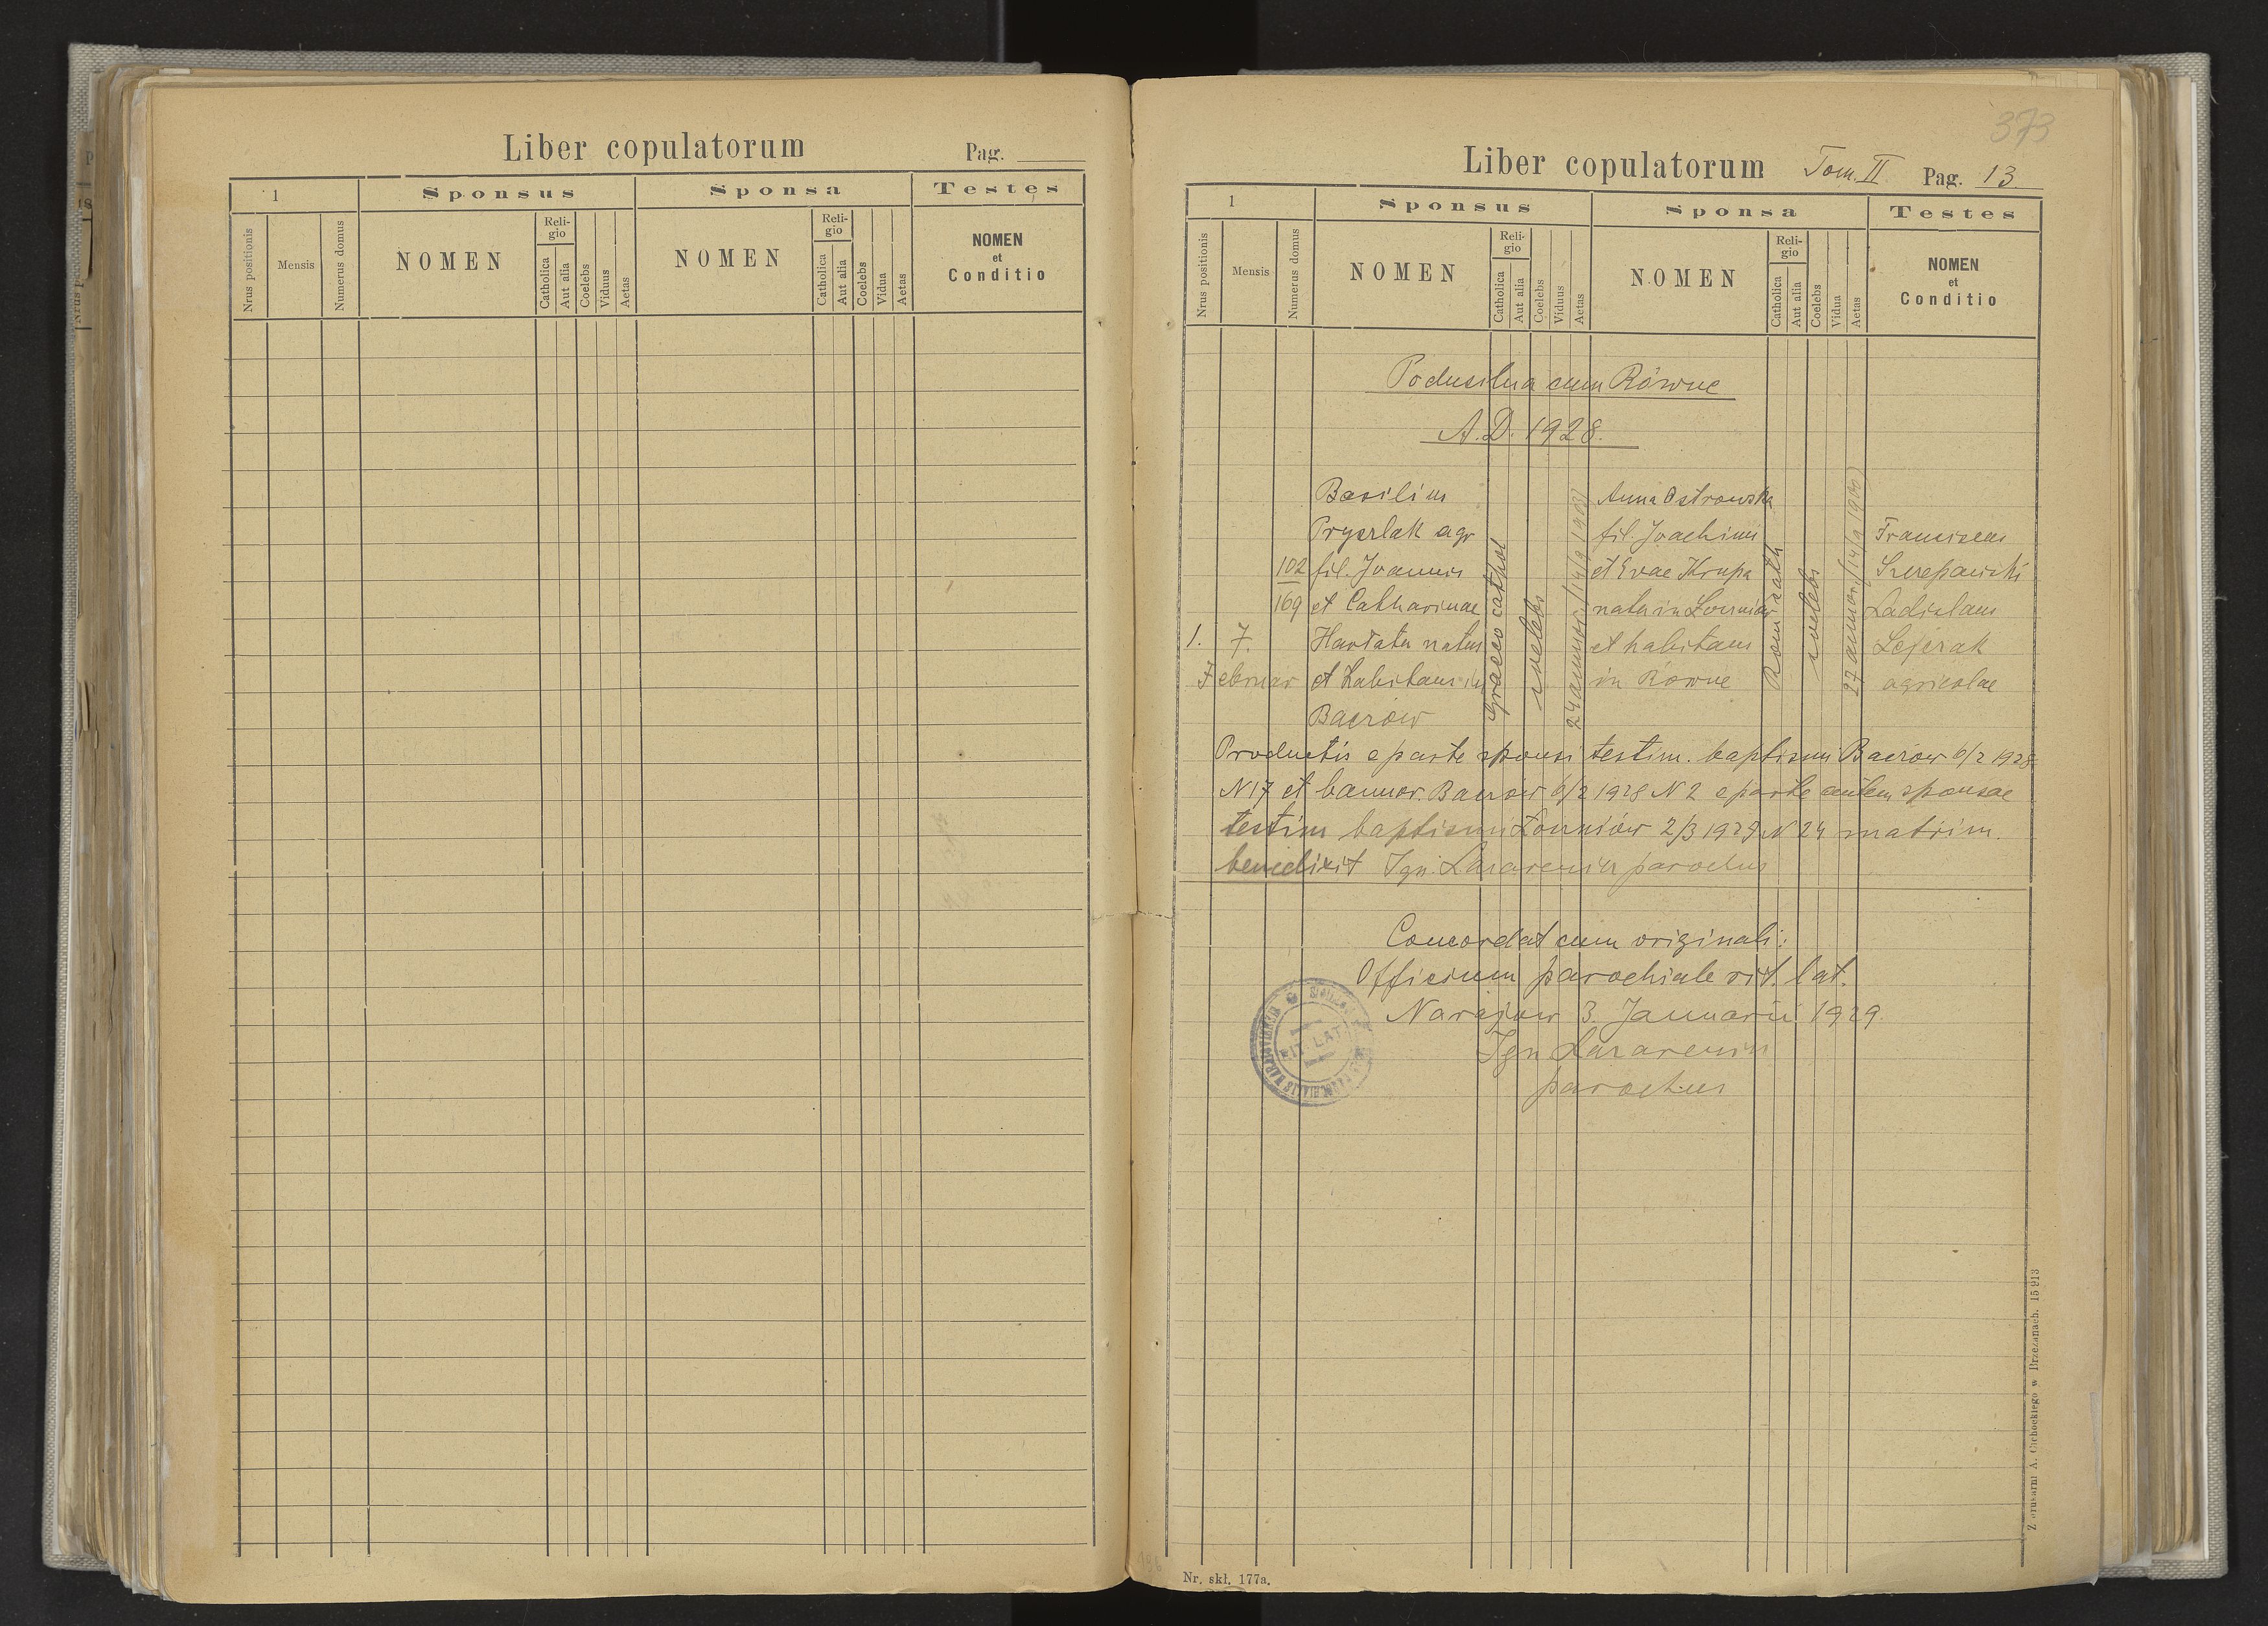 Liber copulatorum
Pag.
1
Sponsus
Sponsa
Testes
Nrus positionis
Mensis
Numerus domus
NOMEN
Religio
Catholica
Aut alia
Coelebs
Viduus
Aetas
NOMEN
Religio
Catholica
Aut alia
Coelebs
Vidua
Aetas
NOMEN
et
Conditio
373
Liber copulatorum Tom. II Pag. 13
1
Sponsus
Sponsa
Testes
Nrus positionis
Mensis
Numerus domus
NOMEN
Religio
Catholica
Aut alia
Coelebs
Viduus
Aetas
NOMEN
Religio
Catholica
Aut alia
Coelebs
Vidua
Aetas
NOMEN
et
Conditio
Podusilna cum Równe
A.D. 1928.
1. 7. Februar
102
169
Basilius
Pryszlak agr
fil. Joannis
et Catharinae
natus
et habitans in
Baczów
Graeco cathol
coelebs
24 annor.
Anna Ostrowska
fil. Joachimi
et Evae Krupa
nata in
et habitans
in Równe
Rom cath
coelebs
27 annor.
Franciscus
Szczepański
Ladislaus
agricolae
Productis e parte sponsi testim. baptismi Baczów 6/2 1928
N 17 et bannor. Baczów 6/2 1928 N 2 e parte autem sponsae
testim baptismi 2/3 1929 N 24 matrim.
benedixit Ign. Łazarewicz parochus
Concordat cum originali:
Officium parochiale rit. lat.
Narajow 3. Januarii 1929.
Ign Łazarewicz
parochus
RIT. LAT.
Z drukarni A. Cichockiego w Brzeżanach. 15913
Nr. skł. 177a.